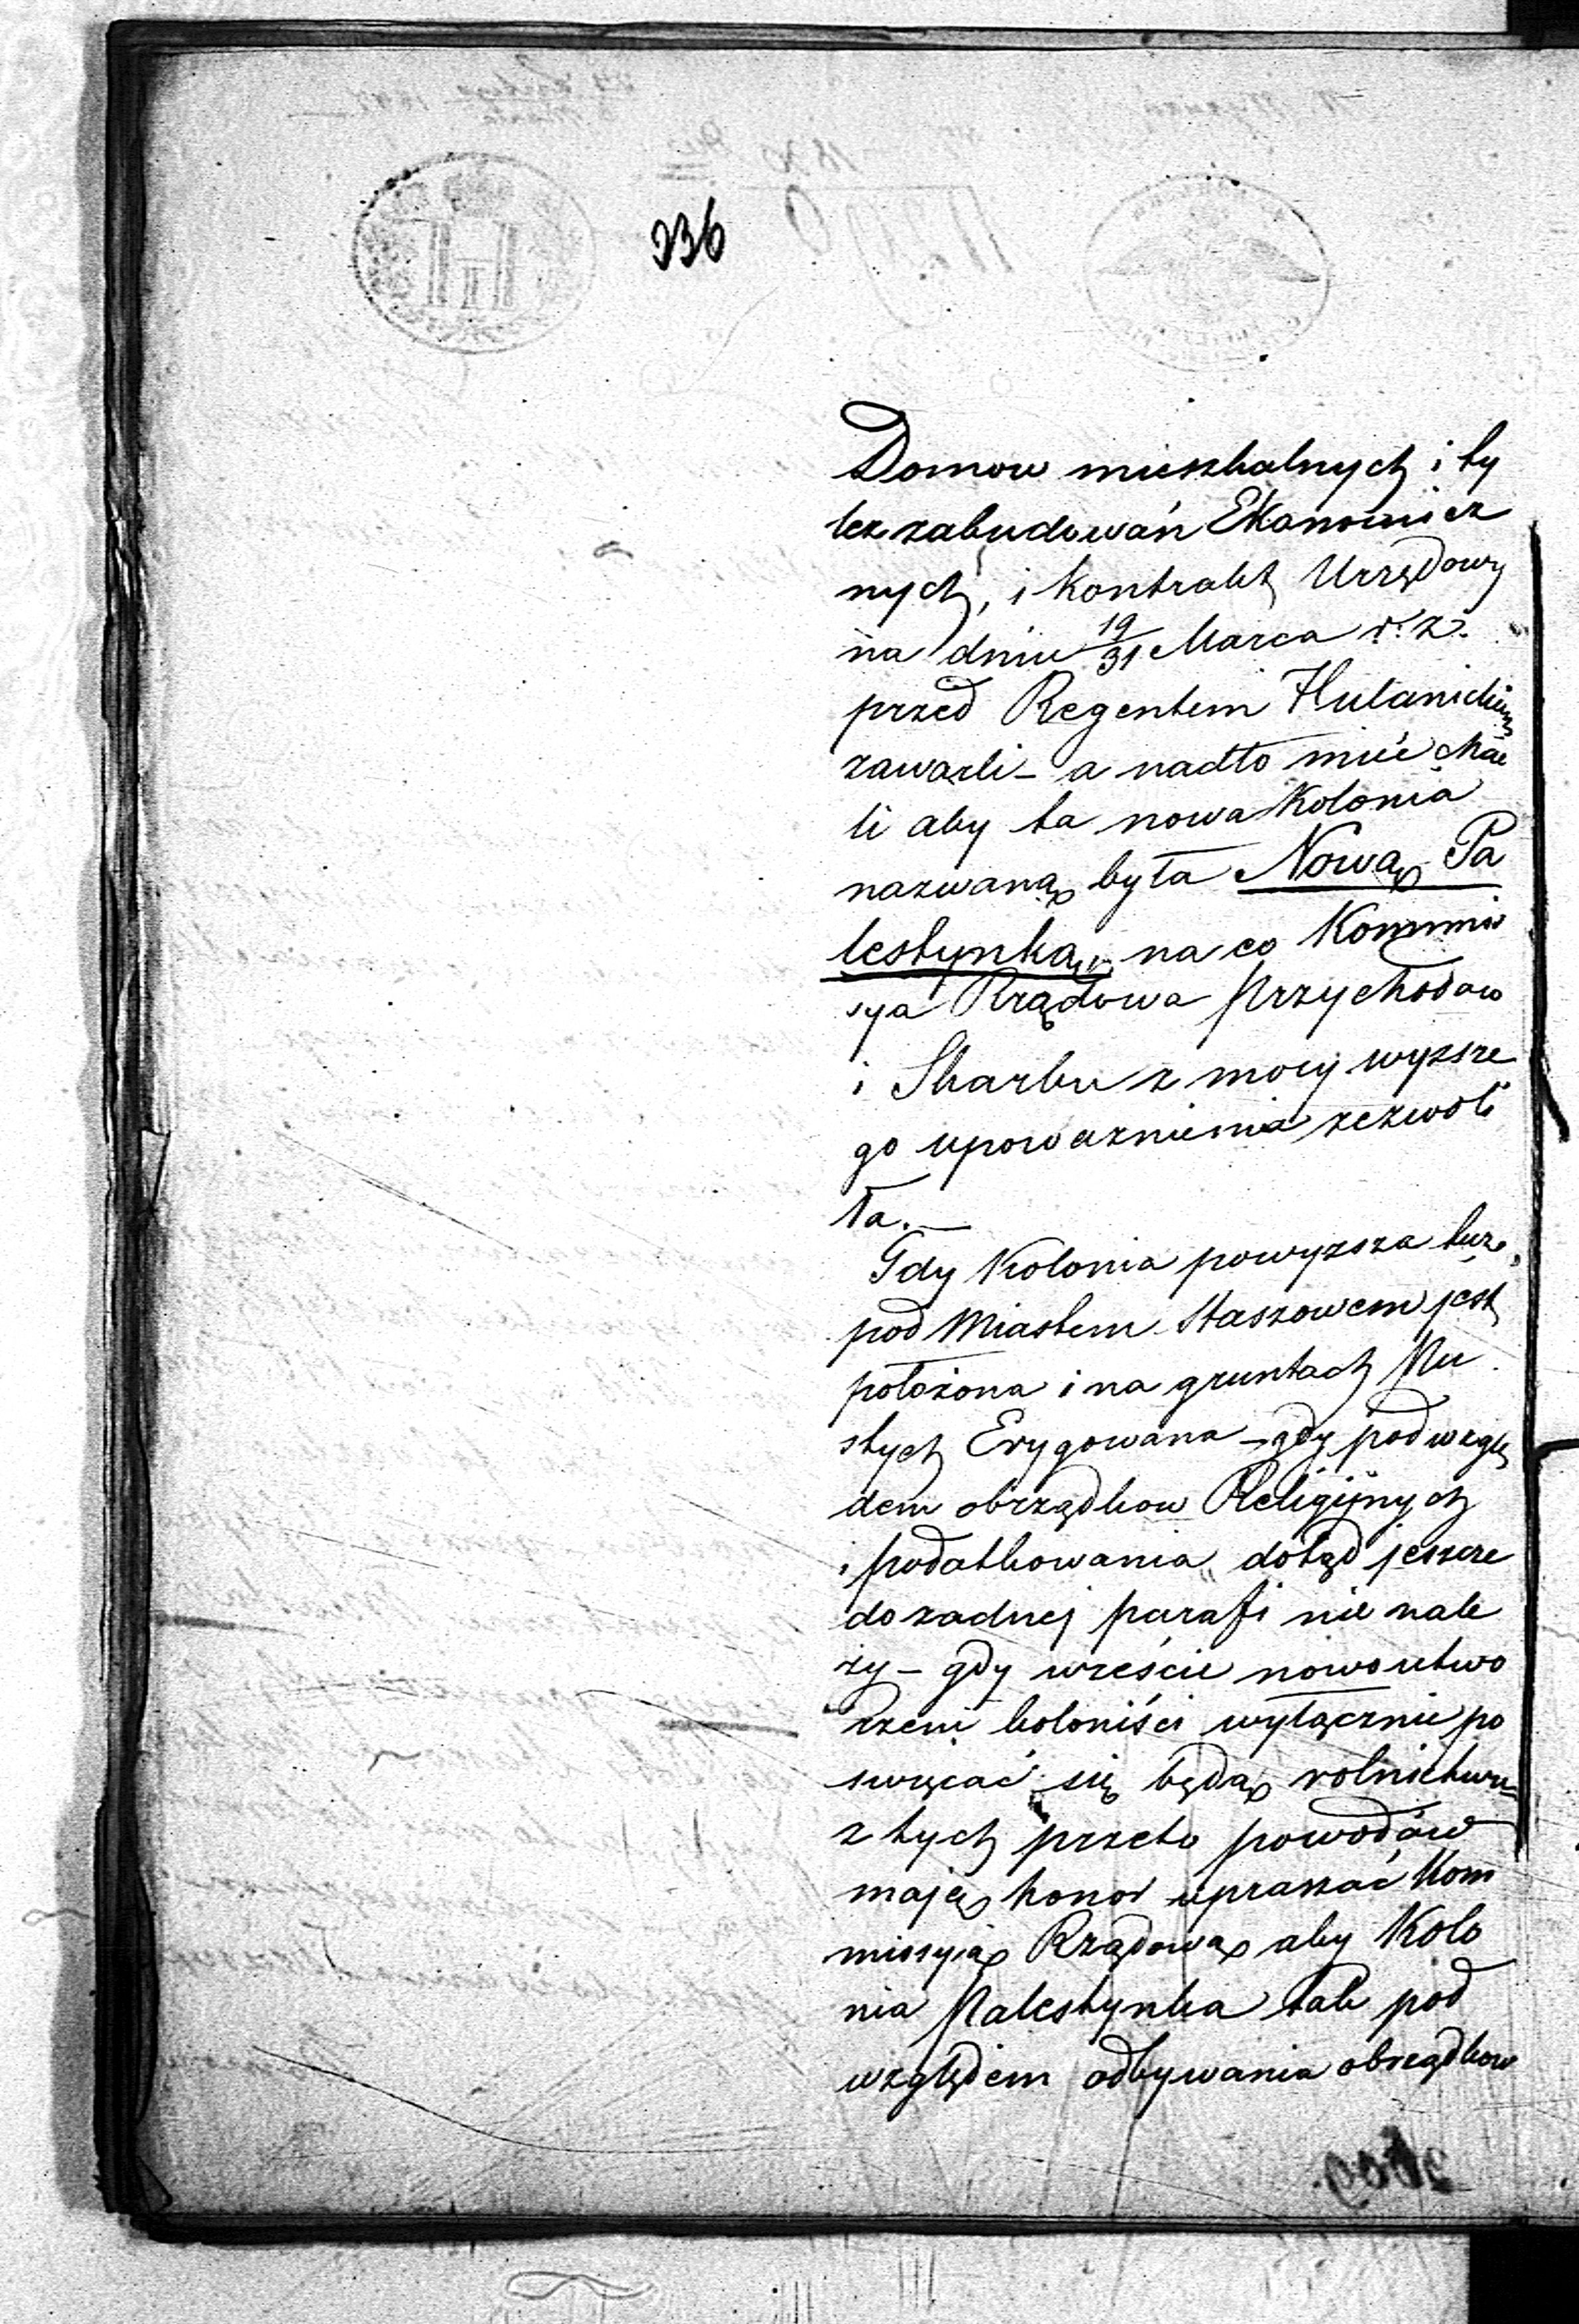 336
Domow mieszkalnych i ty
lez zabudowań Ekonomicz
nych, i kontrakt Urzędowy
na dniu 19/31 Marca r. z.
przed Regentem Hulanickim
zawarli – a nadto mieć chcie
li aby ta nowa Kolonia
nazwaną była Nową Pa
lestynką, na co Kommis
sya Rządowa Przychodow
i Skarbu z mocy wyzsze
go upoważnienia zezwoli
ła. –
Gdy Kolonia powyzsza tuż
pod Miastem Staszowem jest
położona i na gruntach Pu
stych Erygowana – gdy pod wzglę
dem obrządkow Religijnych
i podatkowania dotąd jeszcze
do zadnej parafi nie nale
ży – gdy wreście nowo utwo
rzeni koloniści wyłącznie po
swięcać się będą rolnictwu
z tych przeto powodów
mają honor upraszać Kom
missyią Rządową aby Kolo
nia Palestynka tak pod
względem odbywania obrządkow